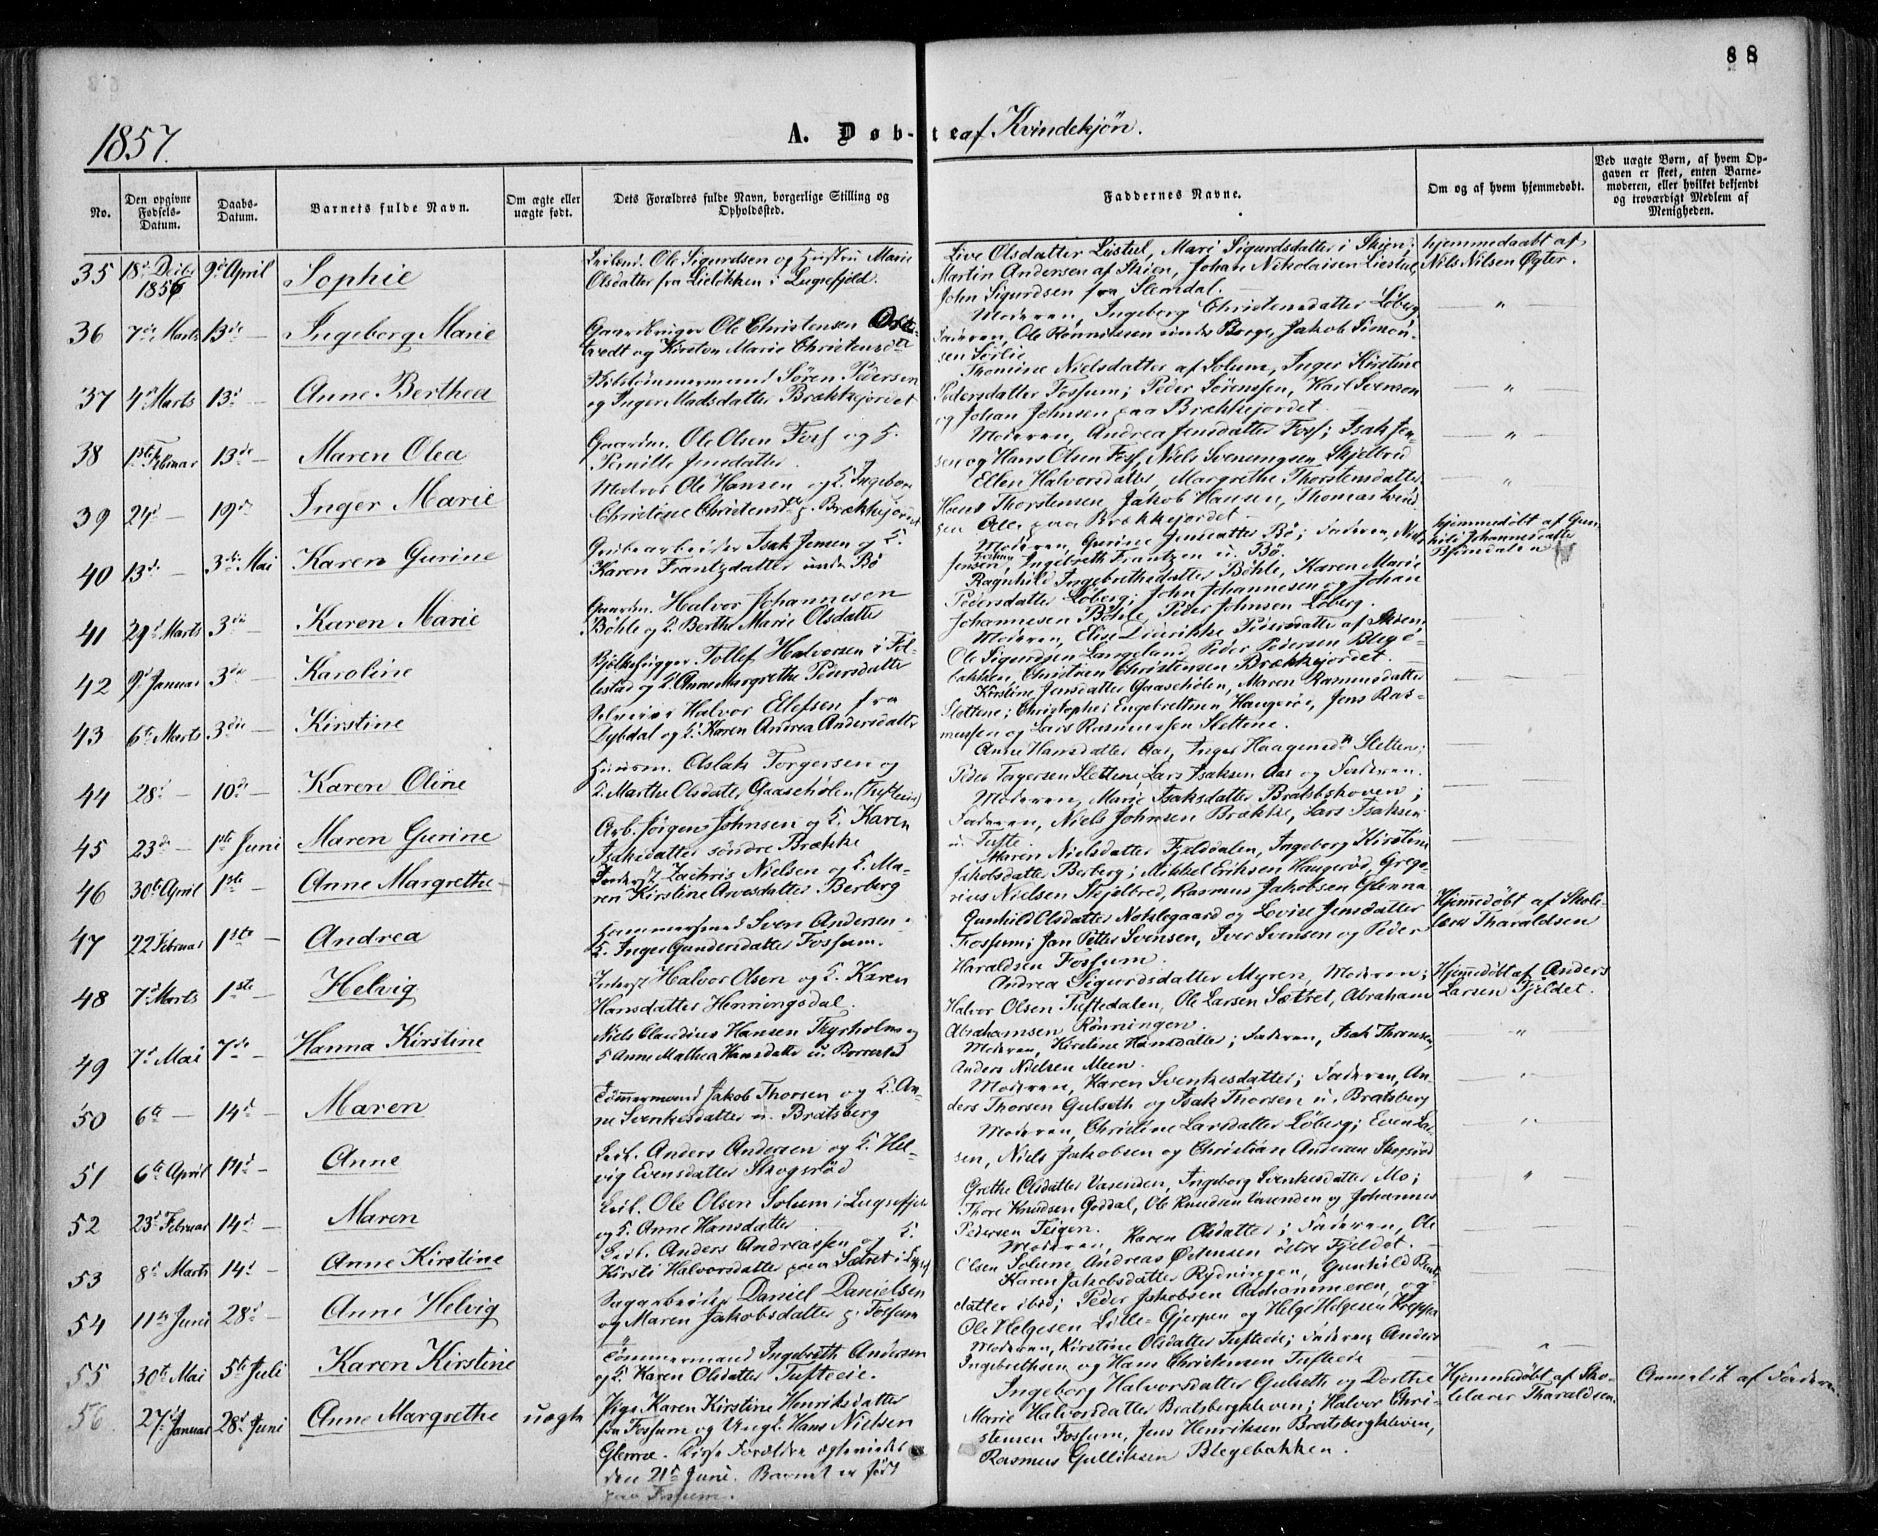 88
1857.
A. Døbte af Kvindekjøn.
No.
Den opgivne Fødsels-Datum.
Daabs-Datum.
Barnets fulde Navn.
Om ægte eller uægte født.
Dets Forældres fulde Navn, borgerlige Stilling og Opholdssted.
Faddernes Navne.
Om og af hvem hjemmedøbt.
Ved uægte Børn, af hvem Opgaven er skeet, enten Barnemoderen, eller hvilket bekjendt og troværdigt Medlem af Menigheden.
35 18d Decbr 1856 9d April Sophie
Ole Sigurdsen og Hustru Marie
Olsdatter fra Lieløkken i Luxefjeld.
Live Olsdatter Liestul, Mari Sigurdsdatter i Skien;
Martin Andersen af Skien, Johan Nikolaisen Liestul
John Sigurdsen fra Slemdal.
hjemmedøbt af
Nils Nilsen Øgter.
36 7de Marts 13de — Ingeborg Marie
Gaardbruger Ole Christensen
og Kirsten Marie Christensdtr
Moderen, Ingeborg Christensdatter Løberg
Faderen, Ole Rønnildsen under Borge, Jakob Simon-
sen Sørlie
"
37 4d Marts 13d — Anne Berthea
Søren Pedersen
og Inger Madsdatter Brækkejordet
Thomine Nielsdatter af Solum, Inger Kirstine
Pedersdatter Fossum; Peder Sørensen, Karl Svenson
og Johan Johnsen paa Brækkejordet
"
38 1ste Februar 13de — Maren Olea
Gaardm. Ole Olsen Foss og H.
Pernille Jensdatter
Moderen, Andrea Jensdatter Foss; Isak Jen-
sen og Hans Olsen Foss, Niels Svenungsen Skjelbred
"
39 24d — 19de Inger Marie
Matros Ole Hansen og H. Ingeborg
Christine Christensdtr p. Brækkejordet
Ellen Halvorsdatter, Margrethe Thorstensdatter
Hans Thorstensen, Jakob Hansen, Thomas
Alle paa Brækkejordet
"
40 13de — 3die Mai Karen Gurine
Grubearbeider Isak Jensen og H.
Karen Frantzdatter under Bø
Moderen, Gurine Jensdatter Bø; Faderen, Niels
Jensen, Ingebreth Frantzen u. Bø.
hjemmedøbt af Gun-
hild Johannesdatter
Bjørndalen
41 29d Marts 3die — Karen Marie
Gaardm. Halvor Johannesen
Bøhle og H. Berthe Marie Olsdatter
Ragnhild Ingebrethsdatter Bøhle, Karen Marie
Pedersdatter Løberg; John Johannesen og Johan
Johannesen Bøhle, Peder Johnsen Løberg.
42 9d Januar 3die — Karoline
Tollef Halvorsen i Fol-
lestad og H. Anne Margrethe Pedersdatter
Moderen, Elise Didrikke Pedersdatter af Skien;
Ole Sigurdsen Langeland, Peder Pedersen Blege-
bakken, Christian Christensen Brækkejordet.
43 6te Marts 3die — Kirstine
Selveier Halvor Ellefsen fra
Dybdal og H. Karen Andrea Andersdatter
Kirstine Jensdatter Gaasehølen, Maren Rasmusdatter
Slettene; Christopher Engebretsen Haugerøe, Jens Ras-
mussen og Lars Rasmussen Slettene.
44 28d — 10de — Karen Oline
Huusm. Aslak Torgersen og
H. Marthe Olsdatter Gaasehølen (Tufteeie)
Anne Hansdatter Aas, Inger Haagensdtr Sletten;
Peder Tagersen Slettene Lars Isaksen Aas og Faderen.
45 23de — 1ste Juni Maren Gurine
Arb. Jørgen Johnsen og H. Karen
Isaksdatter søndre Brække
Moderen, Marie Isaksdatter Bratsbshoven;
Faderen, Niels Johnsen Brække, Lars Isaksen
u. Tufte.
46 30te April 1ste — Anne Margrethe
Zachris Nielsen og H. Ma-
ren Kirstine Arvesdatter Berberg
Maren Nielsdatter Fjeldalen, Ingeborg Kirstine
Jakobsdatter Berberg; Mikkel Eriksen Haugerød, Grego-
rius Nielsen Skjelbred, Rasmus Jakobsen Glenna
47 22 Februar 1ste — Andrea
Hammersmed Sven Andersen
H. Inger Gundersdatter Fossum.
Gunhild Olsdatter Nøtslegaard og Lovise Jensdatter
Fossum; Jan Petter Svensen, Iver Svensen og Peder
Haraldsen Fossum.
Hjemmedøbt af Skole-
lærer Tharaldsen
48 7d Marts 1ste — Helvig
Inderst Halvor Olsen og H. Karen
Hansdatter Henningsdal.
Andrea Sigurdsdatter Myren, Moderen;
Halvor Olsen Tuftedalen, Ole Larsen Sætret, Abraham
Abrahamsen Rønningen.
Hjemmedøbt af Anders
Larsen Fjeldet.
49 7d Mai 7de — Hanna Kirstine
Niels Claudius Hansen Thyrholm og
H Anne Mathea Hansdatter u. Borrestad
Moderen, Kirstine Hansdatter; Faderen, Isak Thorsen,
Anders Nielsen Meen.
"
50 6te — 14d — Maren
Tømmermand Jakob Thorsen og H. An-
ne Svenkesdatter u. Bratsberg
Moderen, Karen Svenkesdatter; Faderen, An-
ders Thorsen Gulseth og Isak Thorsen u. Bratsberg
"
51 6te April 14d — Anne
Leil. Anders Andersen og H. Hel-
vig Evensdatter Skogsrød
Moderen, Christine Larsdatter Løberg; Even Lar-
sen, Niels Jakobsen og Christian Andersen Skogsrød
"
52 23d Februar 14d — Maren
Leil. Ole Olsen Solum i Luxefjeld
og H. Anne Hansdatter
Grethe Olsdatter Vasenden, Ingeborg Svenkesdatter Mo;
Thore Knudsen Goddal, Ole Knudsen Vasenden og Johannes
Pedersen Teigen.
"
53 8d Marts 14d — Anne Kirstine
Leil. Anders Andreassen og H.
Kirsti Halvorsdatter paa Sætret i
Moderen, Karen Olsdatter; Faderen, Ole
Olsen Solum, Andreas Østensen østre Fjeldet.
54 11te Juni 28d — Anne Helvig
Daniel Danielsen
og Maren Jakobsdatter p. Fossum
Karen Jakobsdatter Rydningen, Gunhild
datter ibid; Peder Jakobsen Aashammeren, og
Ole Helgesen Lille-Gjerpen og Helge Helgesen
55 30te Mai 5te Juli Karen Kirstine
Tømmermand Ingebreth Andersen
og H. Karen Olsdatter Tufteeie.
Moderen, Kirstine Olsdatter Tufteeie; Faderen, Anders
Ingebrethsen og Hans Christensen Tufteeie
"
56 27d Januar 28d Juni Anne Margrethe uægte
Pige Karen Kirstine Henriksdatter
fra Fossum og Ungk. Hans Nielsen
Glenna. Disse Forældre ægteviedes
den 21d Juni. Barnet er født
paa Fossum.
Ingeborg Halvorsdatter Gulseth og Dorthe
Marie Halvorsdatter Bratsbergkleven; Halvor Chri-
stensen Fossum, Jens Henriksen Bratsbergkleven,
Rasmus Gulliksen Blegebakken.
Hjemmedøbt af Sko-
lelærer Tharaldsen.
Anmeldt af Faderen